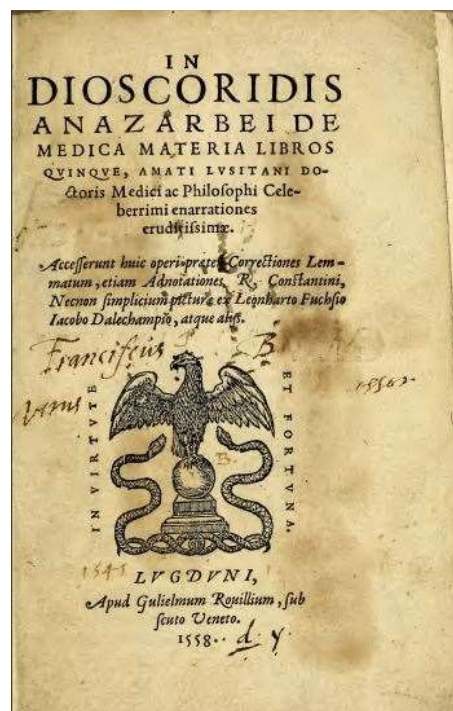 IN
DIOSCORIDIS
ANAZARBEI DE
MEDICA MATERIA LIBROS
QVINQVE, AMATI LVSITANI DO-
ctoris Medici ac Philoſophi Cele-
berrimi enarrationes
eruditiſsimæ.
Acceſſerunt huic operi præter Correctiones Lem-
matum, etiam Adnotationes R. Conſtantini,
Necnon ſimplicium picturæ ex Leonharto Fuchſio
Iacobo Dalechampio, atque alijs.
Franciſcus B
IN VIRTVTE
ET FORTVNA.
B.
1541
LVGDVNI,
Apud Gulielmum Rouillium, ſub
ſcuto Veneto.
1558.